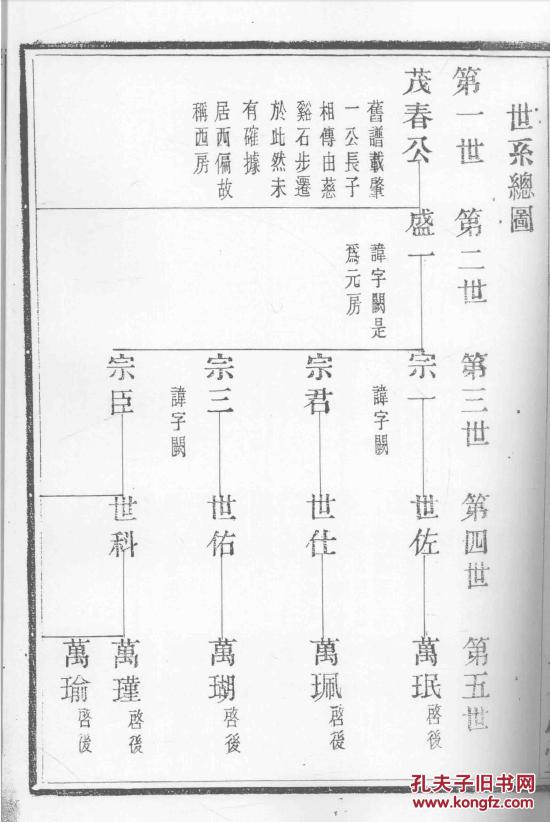 世系總圖
第一世
第二世
第三世
第四世
第五世
茂春公
盛一
宗一
世佐
萬珉
啓後
舊譜載肇
一公長子
相傳由慈
谿石步遷
於此然未
有確據
居西偏故
稱西房
諱字闕是
爲元房
諱字闕
宗君
世仕
萬珮
啓後
宗三
諱字闕
世佑
萬瑚
啓後
宗臣
世科
萬瑾
啓後
萬瑜
孔夫子旧书网
www.kongfz.com